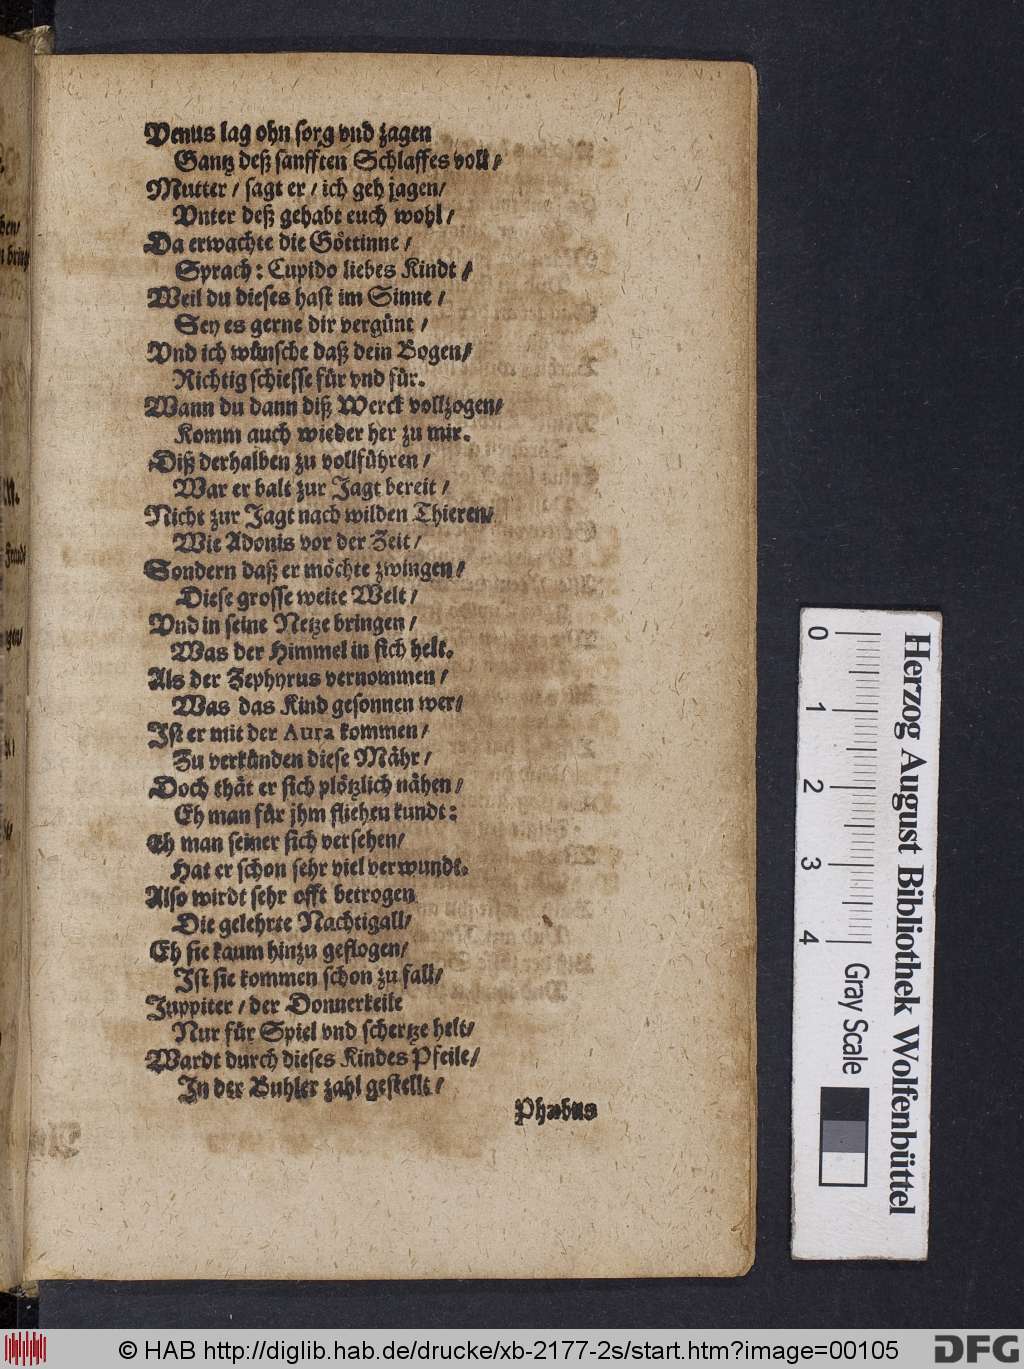 Venus lag ohn sorg vnd zagen
Gantz deß sanfften Schlaffes voll /
Mutter / sagt er / ich geh jagen /
Vnter deß gehabt euch wohl /
Da erwachte die Göttinne /
Sprach : Cupido liebes Kindt /
Weil du dieses hast im Sinne /
Sey es gerne dir vergünt /
Vnd ich wünsche daß dein Bogen /
Richtig schiesse für vnd für.
Wann du dann diß Werck vollzogen /
Komm auch wieder her zu mir.
Diß derhalben zu vollführen /
War er balt zur Jagt bereit /
Nicht zur Jagt nach wilden Thieren /
Wie Adonis vor der Zeit /
Sondern daß er möchte zwingen /
Diese grosse weite Welt /
Vnd in seine Netze bringen /
Was der Himmel in sich helt.
Als der Zephyrus vernommen /
Was das Kind gesonnen wer /
Ist er mit der Aura kommen /
Zu verkünden diese Mähr /
Doch thät er sich plötzlich nähen /
Eh man für jhm fliehen kundt :
Eh man seiner sich versehen /
Hat er schon sehr viel verwundt.
Also wirdt sehr offt betrogen
Die gelehrte Nachtigall /
Eh sie kaum hinzu geflogen /
Ist sie kommen schon zu fall /
Juppiter / der Donnerkeile
Nur für Spiel vnd schertze helt /
Wardt durch dieses Kindes Pfeile /
In der Buhler zahl gestellt /
Phæbus
ben /
n bring
gen /
0 1 2 3 4
Gray Scale
Herzog August Bibliothek Wolfenbüttel
© HAB http://diglib.hab.de/drucke/xb-2177-2s/start.htm?image=00105
DFG